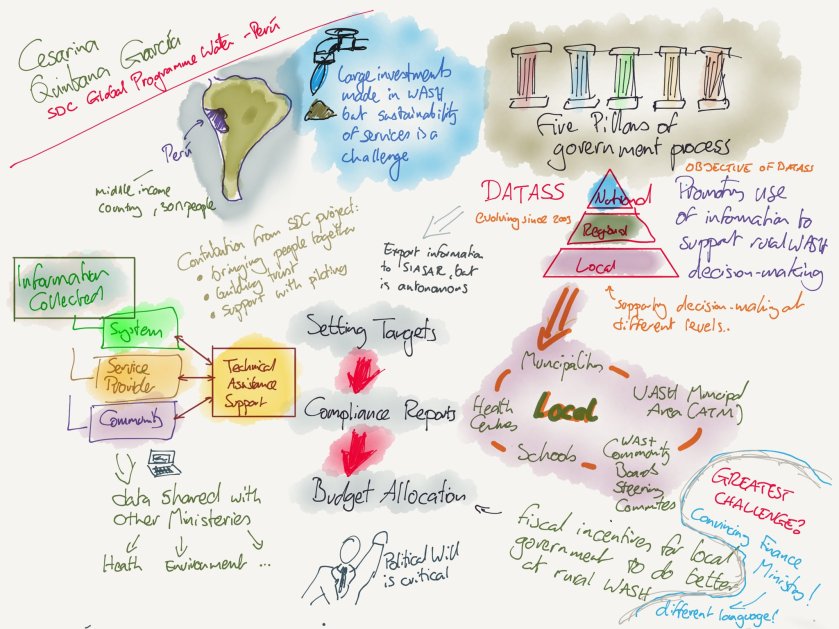 Cesarina
Quintana García
SDC Global Programme Water - Perú
Perú
middle income
country, 30m people
Large investments
made in WASH
but sustainability
of services is a
challenge
Five Pillars of
government process
DATASS
evolving since 2003
National
Regional
Local
OBJECTIVE OF DATASS
Promoting use
of information to
support rural WASH
decision-making
supporting decision-making at
different levels..
Contribution from SDC project:
• bringing people together
• building trust
• support with piloting
Export information
to SIASAR, but
is autonomous
Information
Collected
System
Service
Provider
Community
Technical
Assistance
Support
data shared with
other Ministeries
Heath Environment ...
Setting Targets
Compliance Reports
Budget Allocation
Political Will
is critical
Municipalities
Local
Health
Centres
WASH Muncipal
Area (ATM)
Schools
WASH
Community
Boards
Steering
Commitees
fiscal incentives for local
government to do better
at rural WASH
GREATEST
CHALLENGE?
Convincing Finance
Ministry!
different language!